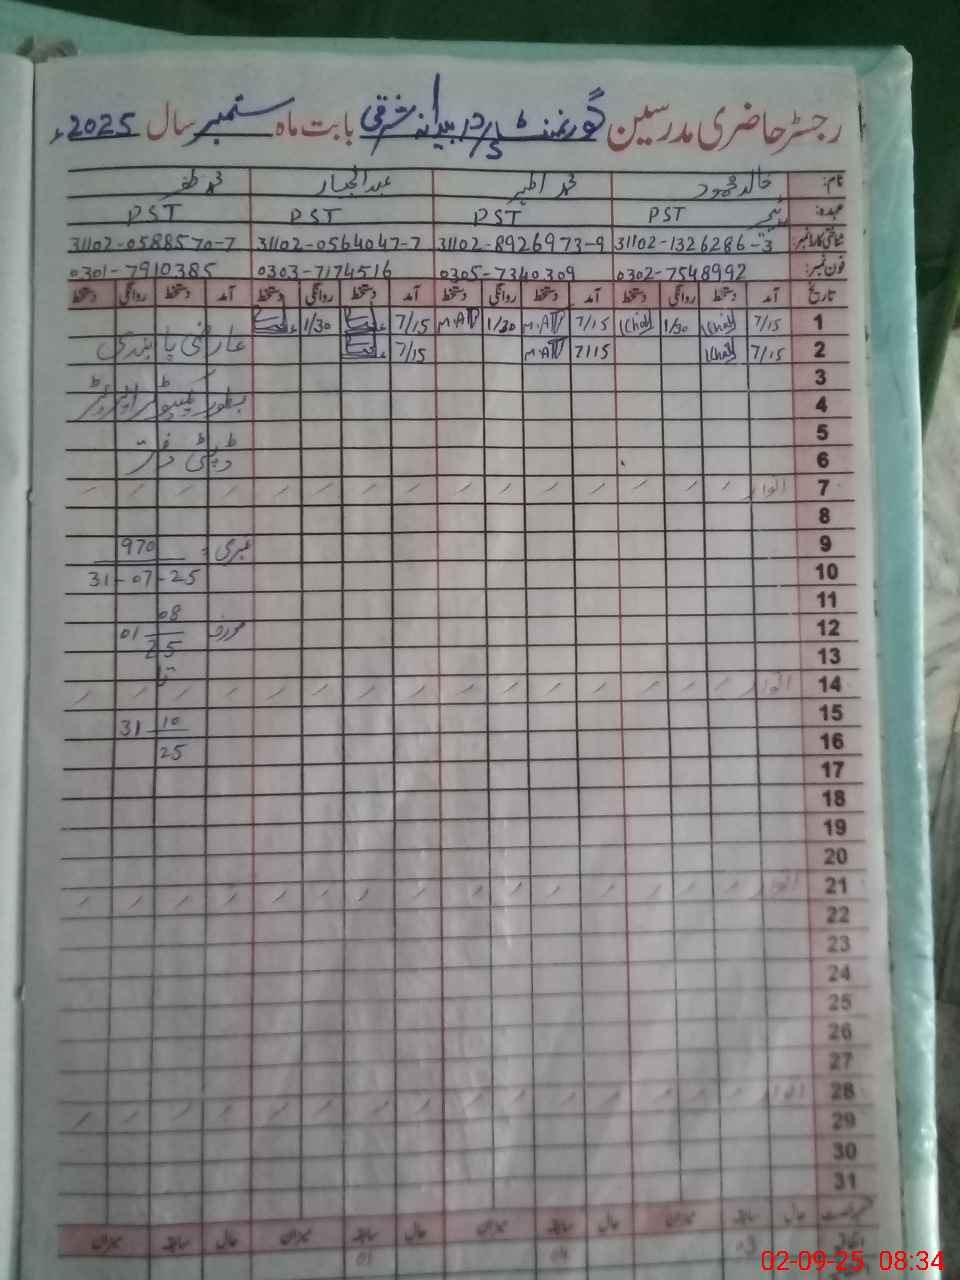 رجسٹر حاضری مدرسین گورنمنٹ بابت ماہ ستمبر سال 2025ء
نام: خالد محمود محمد اطہر عبدالجبار محمد ظفر
عہدہ: PST PST PST PST
شناختی کارڈ نمبر: 31102-1326286-3 31102-8926973-9 31102-0564047-7 31102-0588570-7
فون نمبر: 0302-7548992 0305-7340309 0303-7174516 0301-7910385
تاریخ آمد دستخط روانگی دستخط آمد دستخط روانگی دستخط آمد دستخط روانگی دستخط آمد دستخط روانگی دستخط
1 7/15 1/30 7/15 1/30 7/15 1/30
2 7/15 7/15 7/15 عارضی پابندی
3
4 بطور کمپیوٹر آپریٹر
5
6
7 اتوار
8
9 970
10 31-07-25
11 08
12 01
13 25 تا
14 اتوار
15 31 10
16 25
17
18
19
20
21 اتوار
22
23
24
25
26
27
28 اتوار
29
30
31
حال سابقہ میزان حال سابقہ میزان حال سابقہ میزان حال سابقہ میزان
03 04 01
02-09-25 08:34